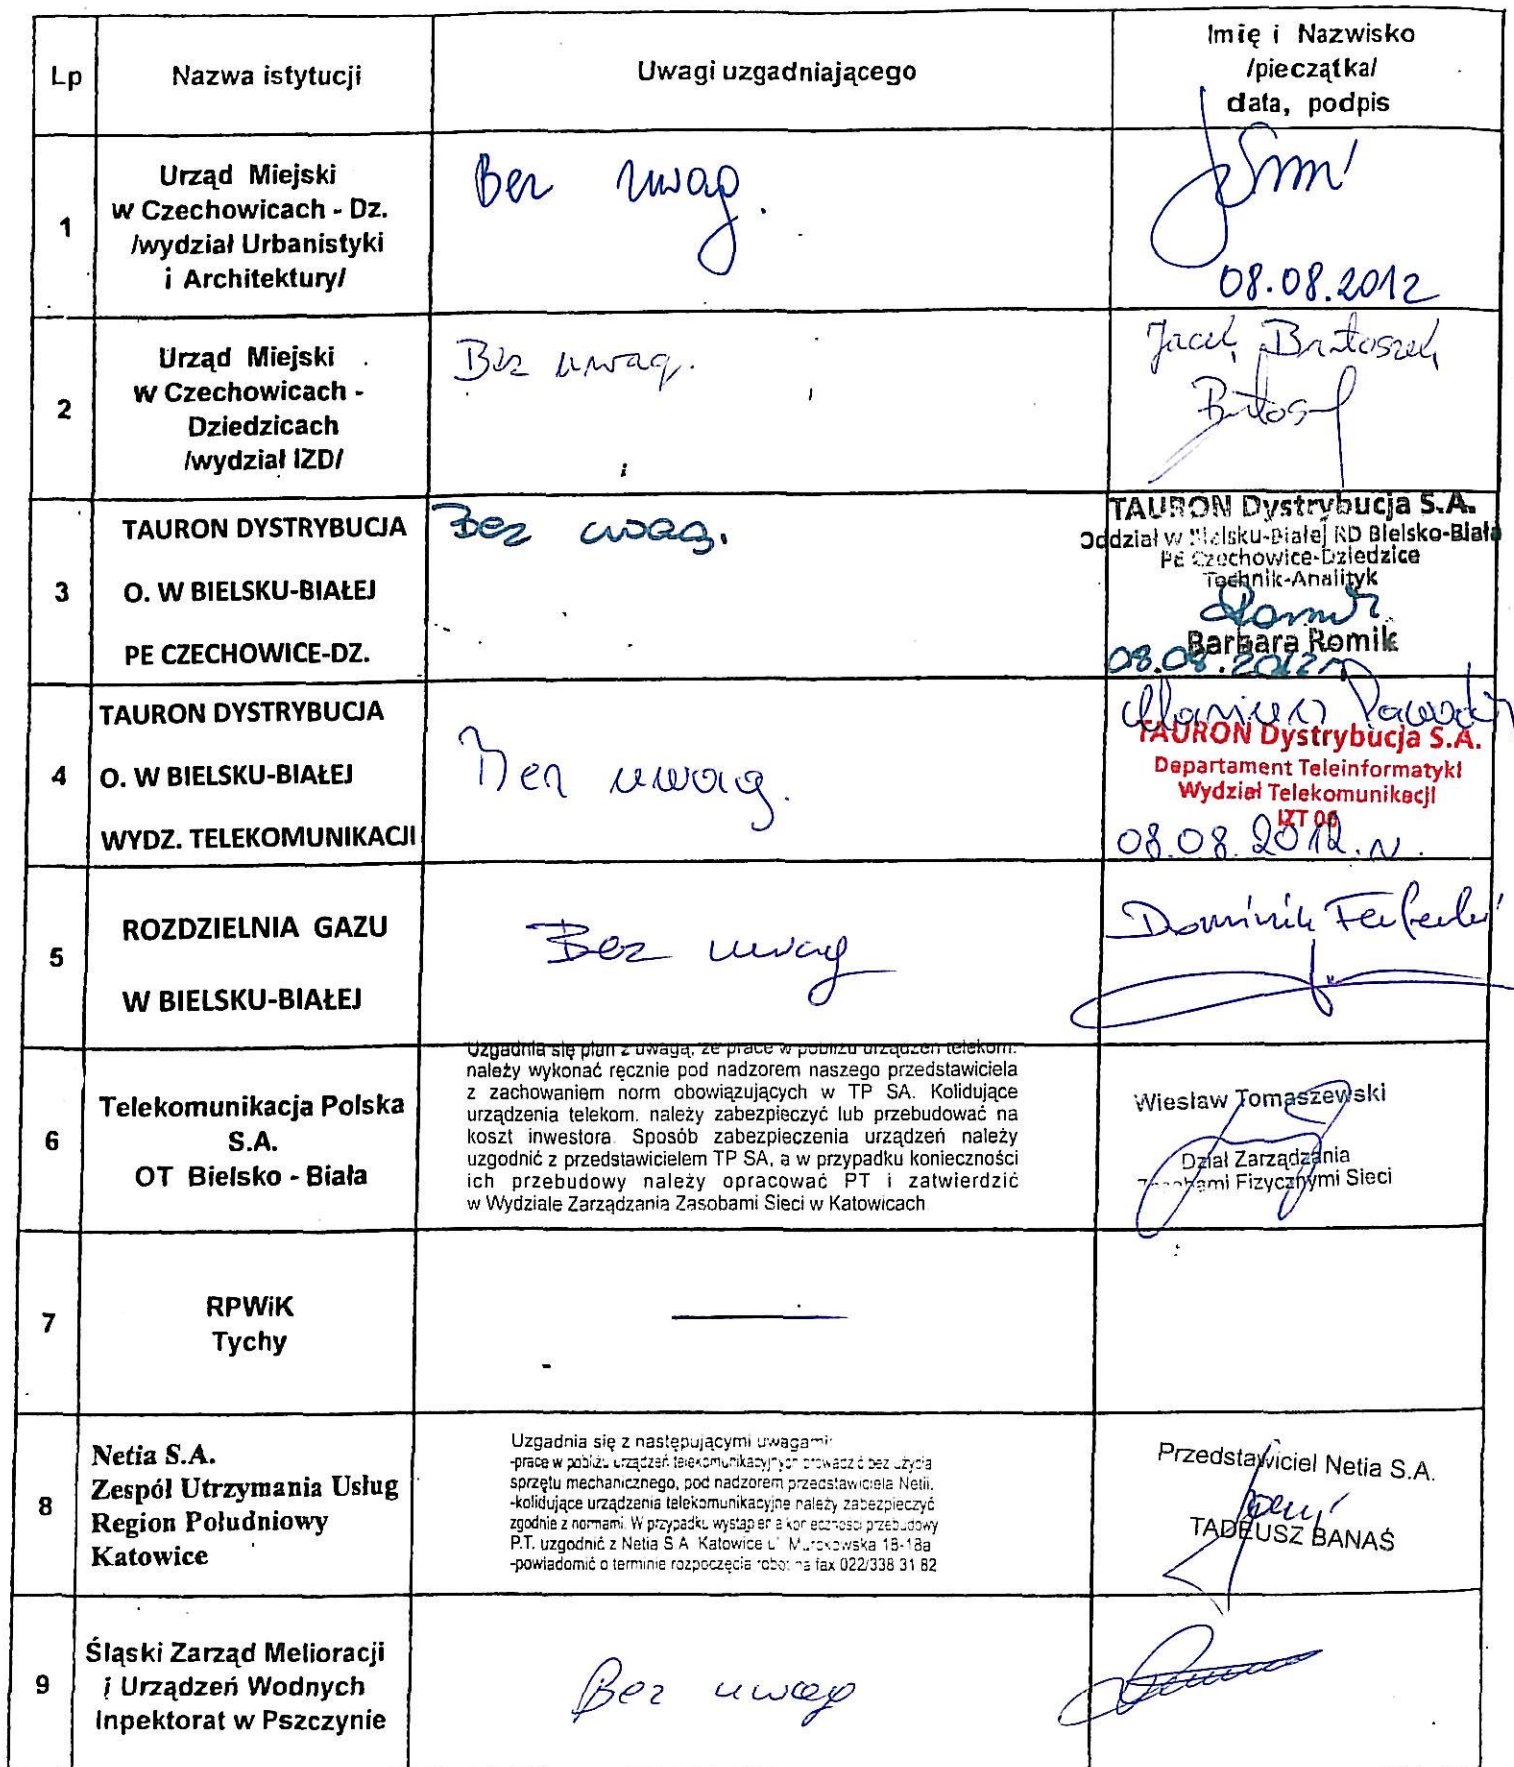 Lp
Nazwa istytucji
Uwagi uzgadniającego
Imię i Nazwisko
/pieczątka/
data, podpis
1
Urząd Miejski
w Czechowicach - Dz.
/wydział Urbanistyki
i Architektury/
Bez uwag.
08.08.2012
2
Urząd Miejski
w Czechowicach -
Dziedzicach
/wydział IZD/
Bez uwag.
Jacek
3
TAURON DYSTRYBUCJA
O. W BIELSKU-BIAŁEJ
PE CZECHOWICE-DZ.
Bez uwag.
TAURON Dystrybucja S.A.
Oddział w Bielsku-Białej RD Bielsko-Biała
PE Czechowice-Dziedzice
Technik-Analityk
Barbara Romik
08.08.2012r
4
TAURON DYSTRYBUCJA
O. W BIELSKU-BIAŁEJ
WYDZ. TELEKOMUNIKACJI
Bez uwag.
TAURON Dystrybucja S.A.
Departament Teleinformatyki
Wydział Telekomunikacji
IZT 06
08.08.2012.r.
5
ROZDZIELNIA GAZU
W BIELSKU-BIAŁEJ
Bez uwag
Dominik
6
Telekomunikacja Polska
S.A.
OT Bielsko - Biała
Uzgadnia się plan z uwagą, że prace w pobliżu urządzeń telekom.
należy wykonać ręcznie pod nadzorem naszego przedstawiciela
z zachowaniem norm obowiązujących w TP SA. Kolidujące
urządzenia telekom. należy zabezpieczyć lub przebudować na
koszt inwestora. Sposób zabezpieczenia urządzeń należy
uzgodnić z przedstawicielem TP SA, a w przypadku konieczności
ich przebudowy należy opracować PT i zatwierdzić
w Wydziale Zarządzania Zasobami Sieci w Katowicach
Wiesław Tomaszewski
Dział Zarządzania
Zasobami Fizycznymi Sieci
7
RPWiK
Tychy
8
Netia S.A.
Zespól Utrzymania Usług
Region Południowy
Katowice
Uzgadnia się z następującymi uwagami:
-prace w pobliżu urządzeń telekomunikacyjnych prowadzić bez użycia
sprzętu mechanicznego, pod nadzorem przedstawiciela Netii.
-kolidujące urządzenia telekomunikacyjne należy zabezpieczyć
zgodnie z normami. W przypadku wystąpienia konieczności przebudowy
P.T. uzgodnić z Netia S.A. Katowice ul. Murckowska 18-18a
-powiadomić o terminie rozpoczęcia robót na fax 022/338 31 82
Przedstawiciel Netia S.A.
TADEUSZ BANAŚ
9
Śląski Zarząd Melioracji
i Urządzeń Wodnych
Inpektorat w Pszczynie
Bez uwag